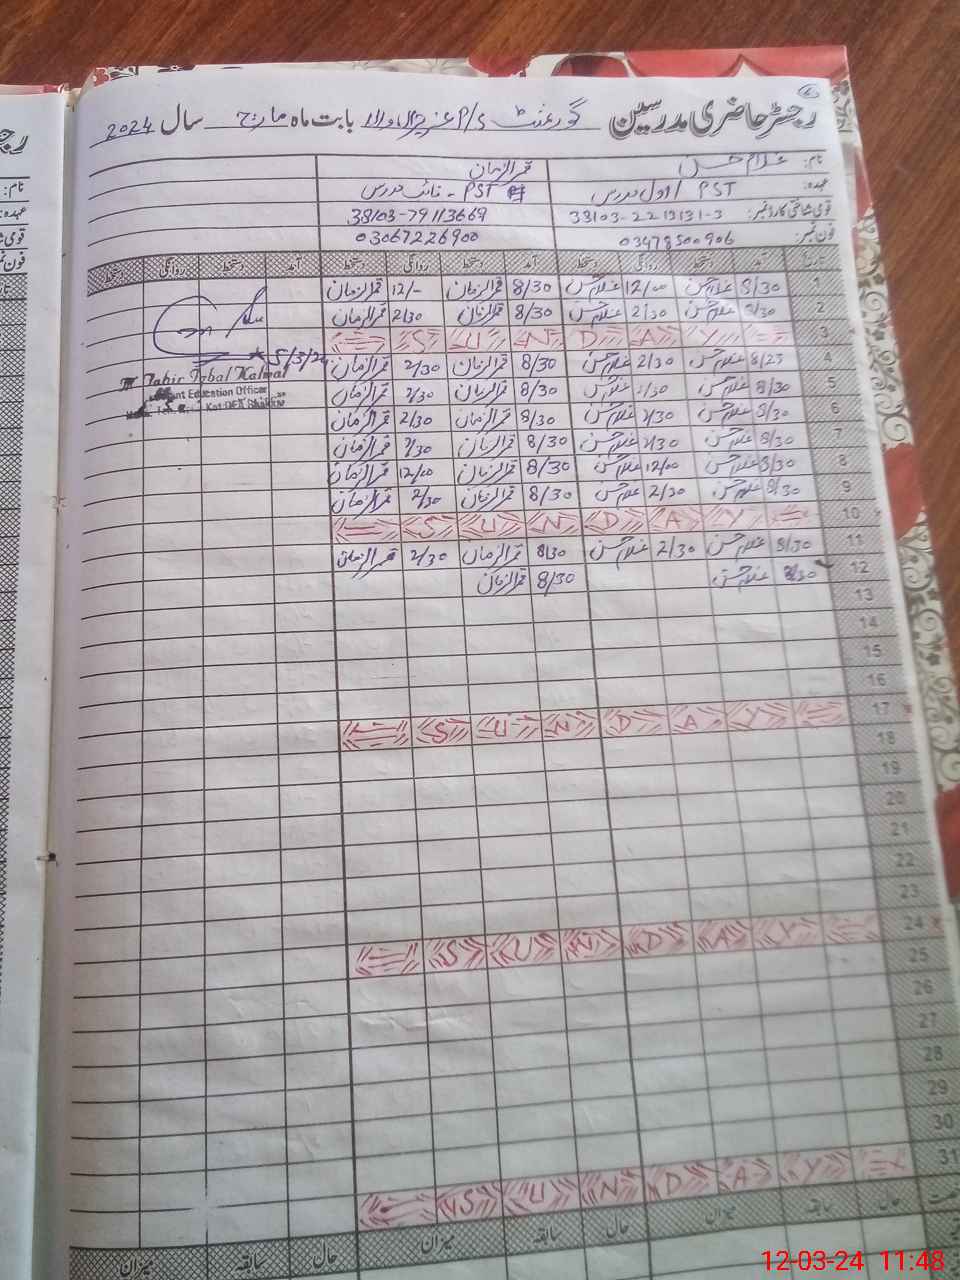 رجسٹر حاضری مدرسین گورنمنٹ P/S بابت ماہ مارچ سال 2024
نام: غلام حسن قمرالزمان
عہدہ: PST / اول مدرس PST - نائب مدرس
قومی شناختی کارڈ نمبر: 38103-2213131-3 38103-79113669
فون نمبر: 03478500906 03067226900
تاریخ آمد دستخط روانگی دستخط آمد دستخط روانگی دستخط آمد دستخط روانگی دستخط
1 8/30 غلام حسن 12/00 غلام حسن 8/30 قمرالزمان 12/- قمرالزمان
2 8/30 غلام حسن 2/30 غلام حسن 8/30 قمرالزمان 2/30 قمرالزمان
3 SUNDAY
4 8/25 غلام حسن 2/30 غلام حسن 8/30 قمرالزمان 2/30 قمرالزمان
5/3/24
5 8/30 غلام حسن 2/30 غلام حسن 8/30 قمرالزمان 2/30 قمرالزمان
Tahir Iqbal Kalwal
Education Officer
6 8/30 غلام حسن 2/30 غلام حسن 8/30 قمرالزمان 2/30 قمرالزمان
7 8/30 غلام حسن 2/30 غلام حسن 8/30 قمرالزمان 2/30 قمرالزمان
8 8/30 غلام حسن 12/00 غلام حسن 8/30 قمرالزمان 12/00 قمرالزمان
9 8/30 غلام حسن 2/30 غلام حسن 8/30 قمرالزمان 2/30 قمرالزمان
10 SUNDAY
11 8/30 غلام حسن 2/30 غلام حسن 8/30 قمرالزمان 2/30 قمرالزمان
12 8/30 غلام حسن 8/30 قمرالزمان
13
14
15
16
17 SUNDAY
18
19
20
21
22
23
24 SUNDAY
25
26
27
28
29
30
31 SUNDAY
حال سابقہ میزان حال سابقہ میزان حال سابقہ میزان
12-03-24 11:48